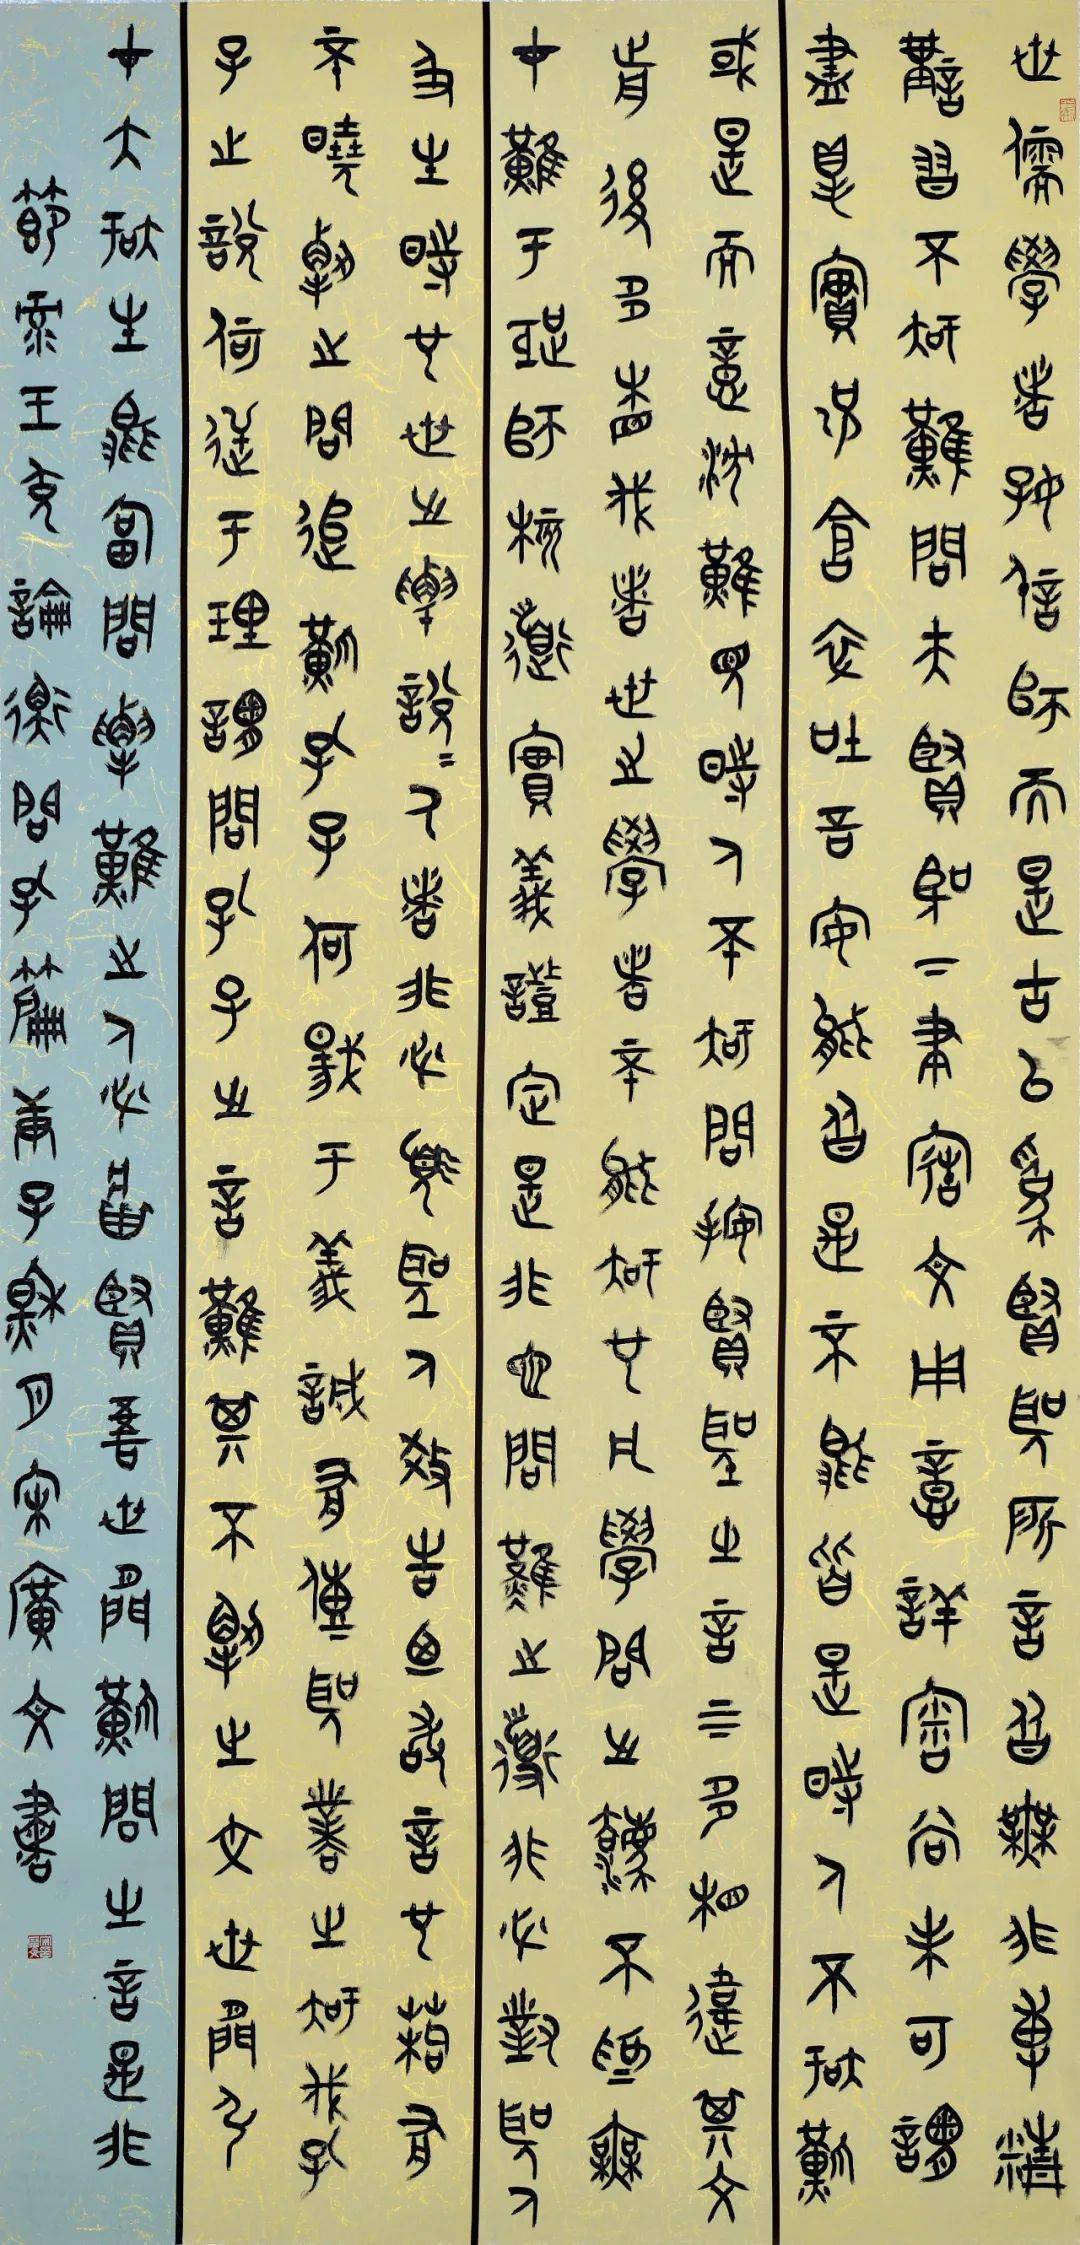 世儒學者好信師而是古以為賢聖所言皆無非專精
講習不知難問夫賢聖下筆造文用意詳審尚未可謂
盡得實況倉卒吐言安能皆是不能皆是時人不知難
或是而意沈難見時人不知問案賢聖之言上下多相違其文
前後多相伐者世之學者不能知也凡學問之法不為無
才難于距師核道實義證定是非也問難之道非必對聖人
及生時也世之解說說人者非必須聖人教告乃敢言也苟有
不曉解之問追難孔子何傷于義誠有傳聖業之知伐孔
子之說何逆于理謂問孔子之言難其不解之文世間弘
才大知生能答問解難之人必將賢吾世間難問之言是非
節錄王充論衡問孔篇庚子秋月宋廣文書